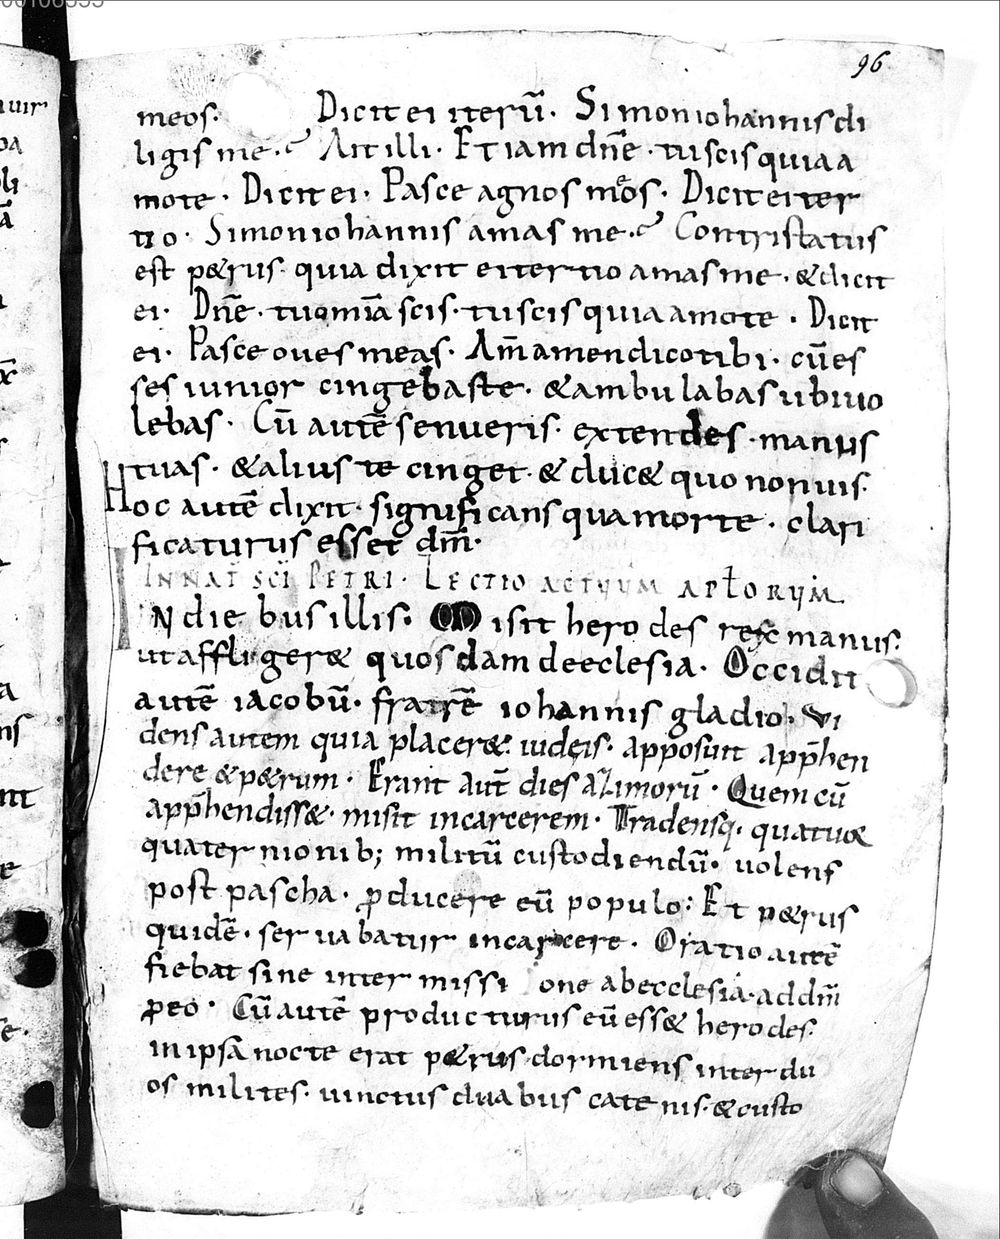 96
meos. Dicit ei iterū. Simon iohannis di
ligis me. Ait illi. Etiam dn̄e. tu scis quia a
mo te. Dicit ei. Pasce agnos meos. Dicit ei ter
tio. Simon iohannis amas me. Contristatus
est petrus. quia dixit ei tertio amas me. & dicit
ei. Dn̄e. tu om̄ia scis. tu scis quia amo te. Dicit
ei. Pasce oues meas. Am̄ amen dico tibi. cū es
ses iunior cingebas te. & ambulabas ubi uo
lebas. Cū autē senueris. extendes manus
tuas. & alius te cinget. & duc& quo non uis.
Hoc autē dixit. significans qua morte. clari
ficaturus esset dm̄.
IN NAT̄ SCĪ PETRI. LECTIO ACTUUM APŁORUM
IN diebus illis. Misit herodes rex manus.
ut affliger& quosdam de ecclesia. Occidit
autē iacobū. fratrē iohannis gladio. Vi
dens autem quia placer& iudęis. apposuit app̄hen
dere & petrum. Erant aut̄ dies azimorū. Quem cū
app̄hendiss&. misit in carcerem. Tradensq. quatuor
quaternionib; militū custodiendū. uolens
post pascha. ꝓducere eū populo: Et petrus
quidē. seruabatur in carcere. Oratio autē
fiebat sine intermissione ab ecclesia. ad dm̄
ꝓ eo. Cū autē producturus eū ess& herodes.
in ipsa nocte erat petrus dormiens inter du
os milites. uinctus duabus catenis. & custo